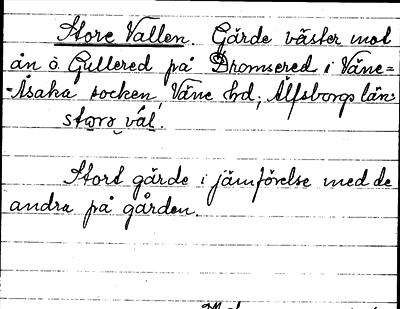 Store Vallen. Gärde väster mot
ån ö. Gullered på Bromsered i Väne=
-Åsaka socken, Väne hd; Älfsborgs län:
storə väl.
Stort gärde i jämförelse med de
andra på gården.